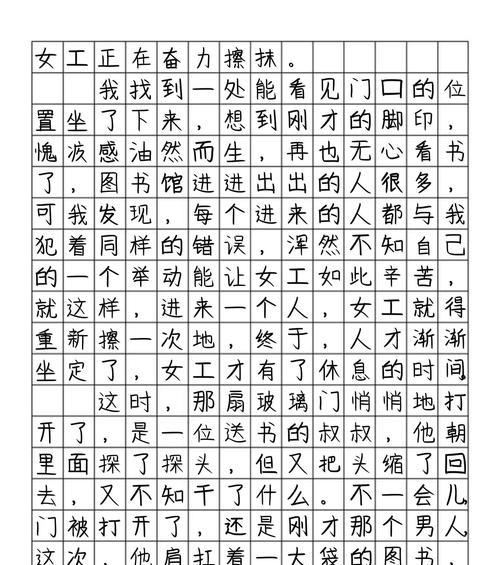 女工正在奋力擦抹。
我找到一处能看见门口的位
置坐了下来，想到刚才的脚印，
愧疚感油然而生，再也无心看书
了，图书馆进进出出的人很多，
可我发现，每个进来的人都与我
犯着同样的错误，浑然不知自己
的一个举动能让女工如此辛苦，
就这样，进来一个人，女工就得
重新擦一次地，终于，人才渐渐
坐定了，女工才有了休息的时间，
这时，那扇玻璃门悄悄地打
开了，是一位送书的叔叔，他朝
里面探了探头，但又把头缩了回
去，又不知干了什么。不一会儿，
门被打开了，还是刚才那个男人，
这次，他肩扛着一大袋的图书，